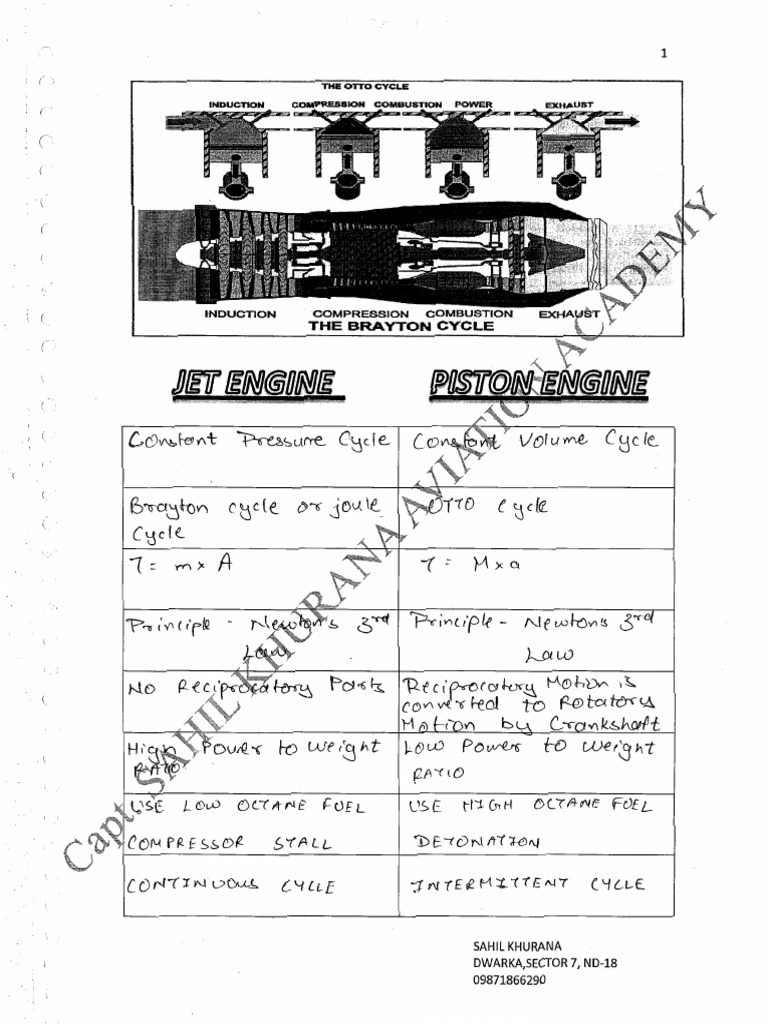 1
THE OTTO CYCLE
INDUCTION COMPRESSION COMBUSTION POWER EXHAUST
INDUCTION COMPRESSION COMBUSTION EXHAUST
THE BRAYTON CYCLE
JET ENGINE PISTON ENGINE
Constant Pressure Cycle Constant Volume Cycle
Brayton cycle or joule OTTO cycle
Cycle
T = m x A T = M x a
Principle - Newton's 3rd Principle - Newtons 3rd
Law Law
No Reciprocatory Parts Reciprocatory Motion is
converted to Rotatory
Motion by Crankshaft
High Power to Weight Low Power to Weight
RATIO RATIO
USE LOW OCTANE FUEL USE HIGH OCTANE FUEL
COMPRESSOR STALL DETONATION
CONTINUOUS CYCLE INTERMITTENT CYCLE
Capt. SAHIL KHURANA AVIATION ACADEMY
SAHIL KHURANA
DWARKA,SECTOR 7, ND-18
09871866290